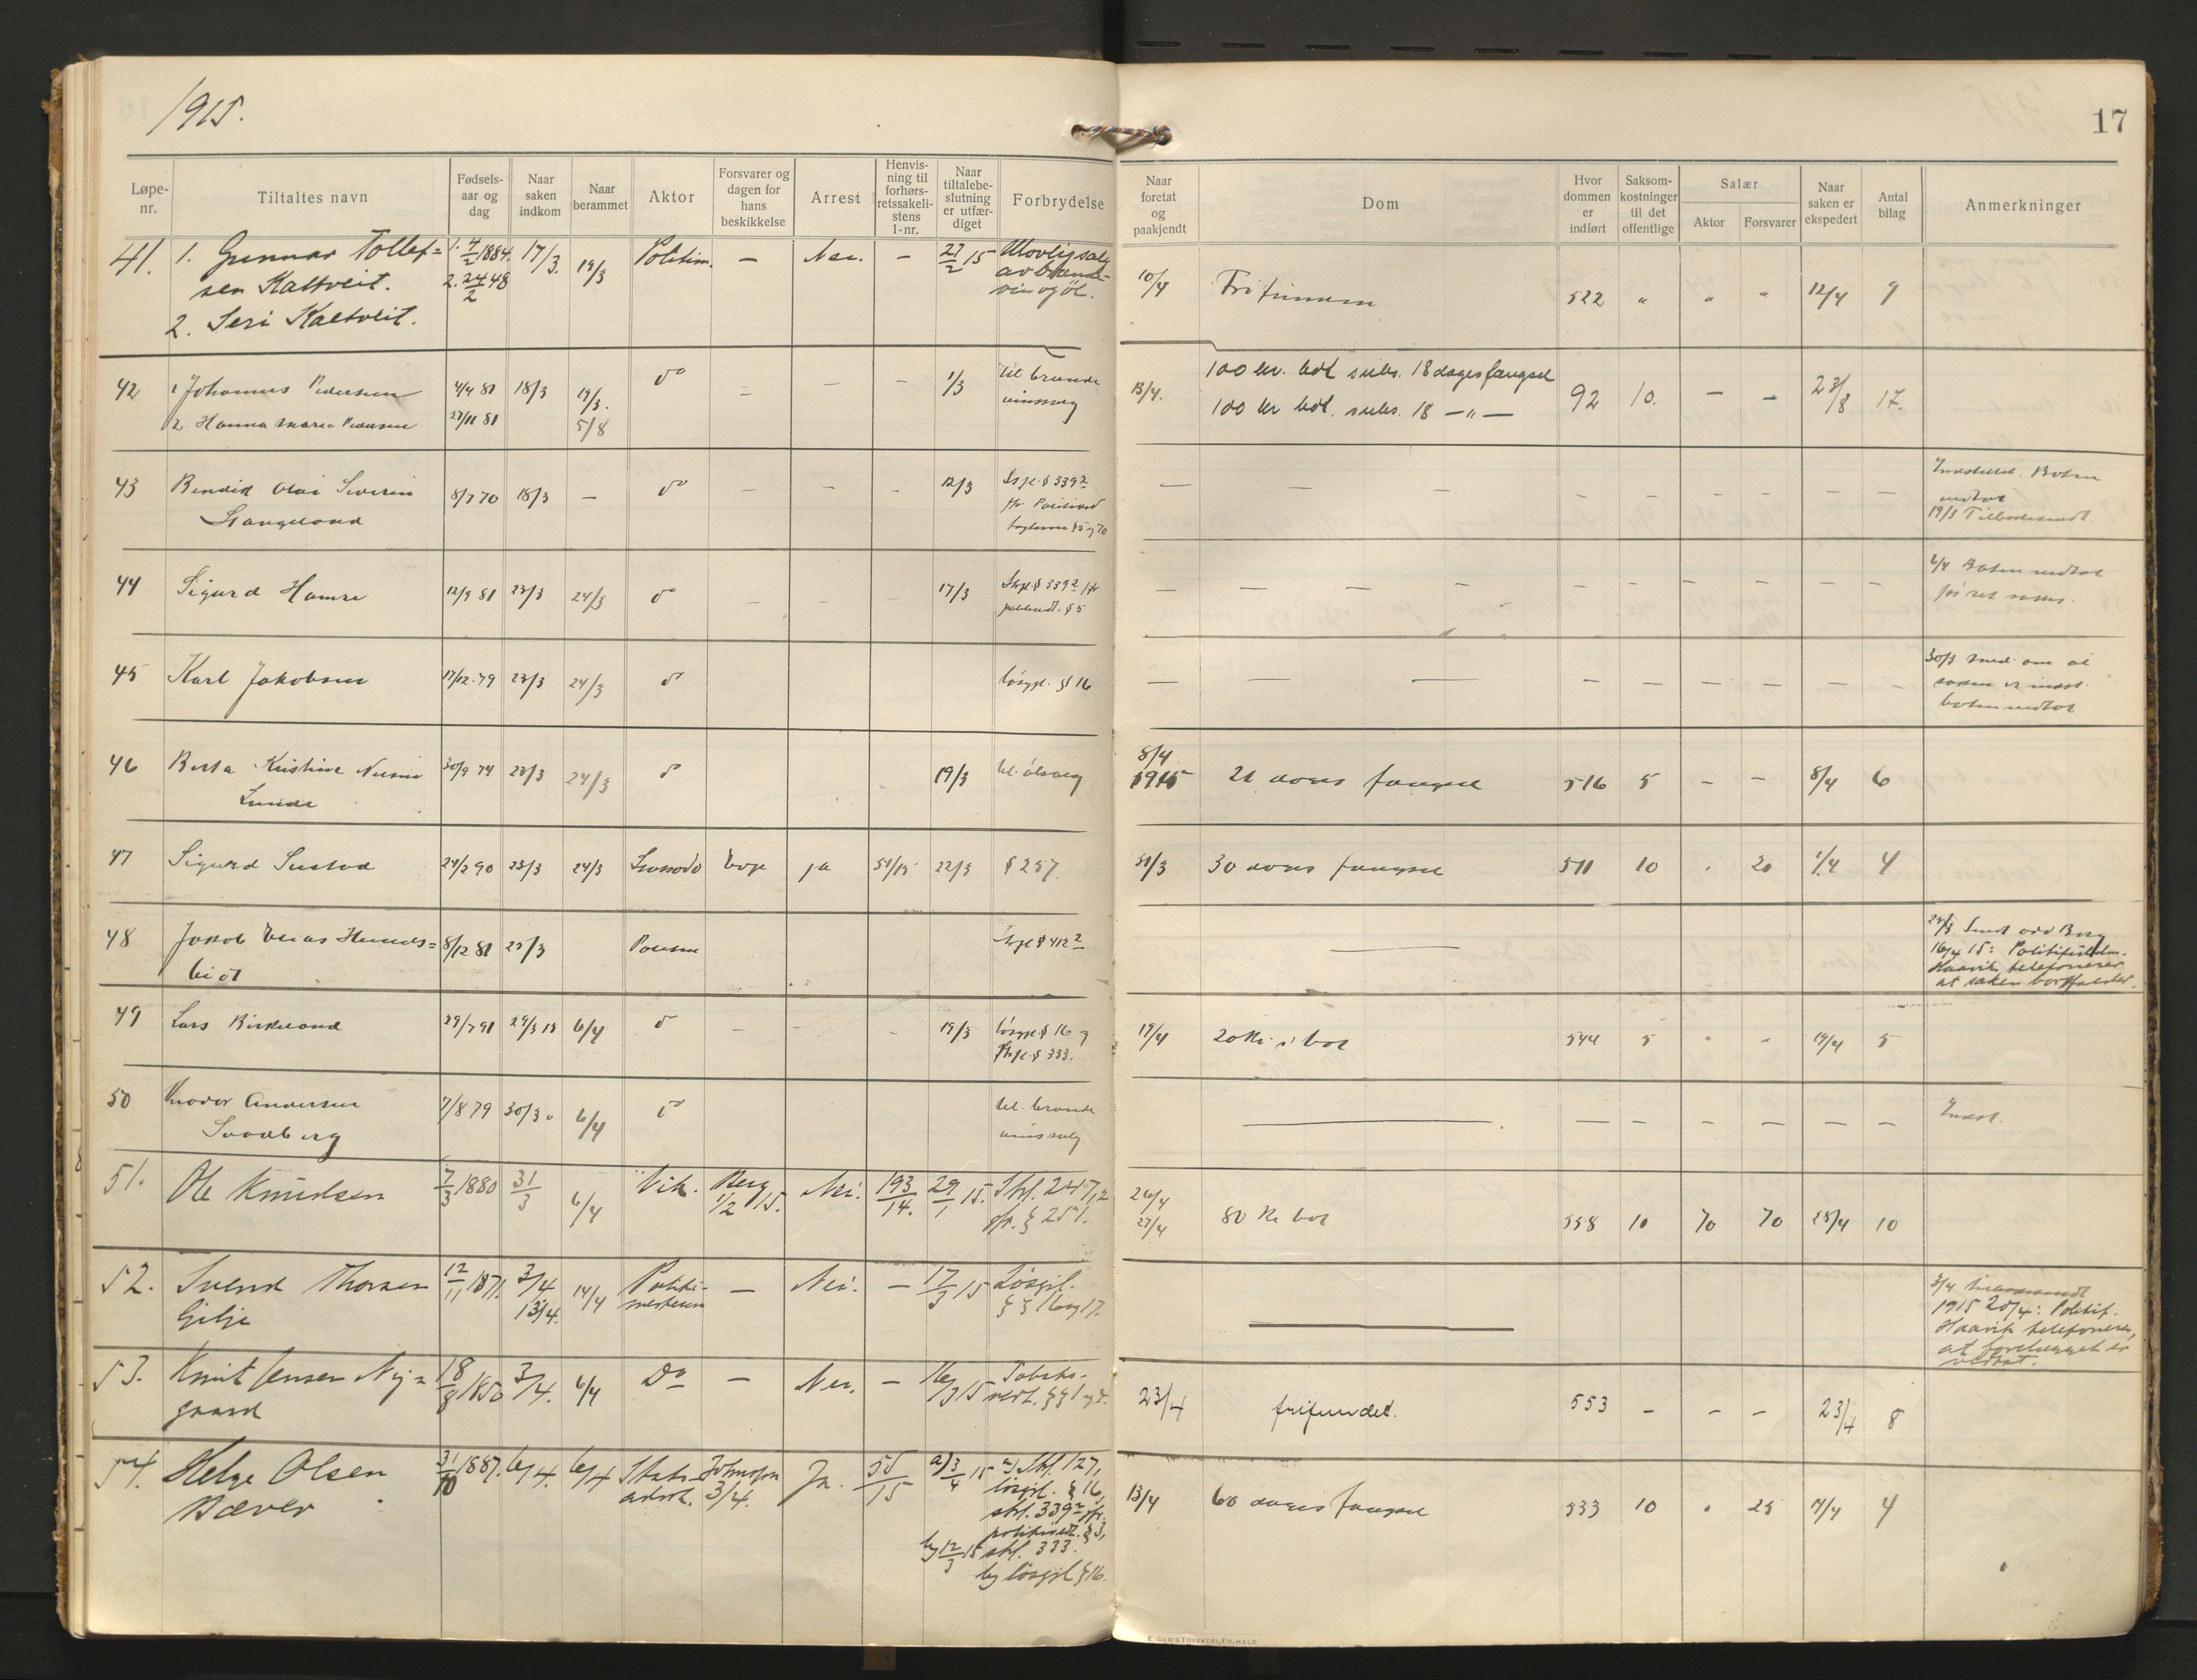 1915.
17
Løpe-nr.
Tiltaltes navn
Fødsels-aar og dag
Naar saken indkom
Naar berammet
Aktor
Forsvarer og dagen for hans beskikkelse
Arrest
Henvis-ning til forhørs-retssakeli-stens l-nr.
Naar tiltalebe-slutning er utfær-diget
Forbrydelse
Naar foretat og paakjendt
Dom
Hvor dommen er indført
Saksom-kostninger til det offentlige
Salær
Aktor
Forsvarer
Naar saken er ekspedert
Antal bilag
Anmerkninger
41. 1. Gunnar Tollef= 1. 4/2 1884. 17/3. 19/3 Politim. — Nei. — 27/2 15 Ulovlig salg
sen Kaltveit. 2. 24/2 48 av brænde-
vin og öl.
2. Seri Kaltveit.
10/4 Frifunnen 522 " " " 12/4 9
42 1 Johannes Pedersen 4/4 81 18/3 19/3. do — — — 1/3 til. brænde
2. Hanna Marie Pedersen 27/11 81 5/8 vinssalg
13/4. 100 kr. bot subs. 18 dages fængsel 92 10. — — 23/8 17.
100 kr bot. subs. 18 — " —
43 Bendik Olai Severin 8/7 70 18/3 — do — — - 12/3 § 339 2
Stangeland
§ 5 og 70
— — — — — — — — — — Botne
vedtat
19/3
44 Sigurd Hamre 12/9 81 23/3 24/3 do — — — 17/3 § 339 2 jfr
§ 5
— — — — — — — — — — 6/4 Boten vedtat
før ret sattes.
45 Karl Jakobsen 17/12 79 23/3 24/3 do løsgjl. § 16
— — — — — — — — — — 30/3 Med. om at
saken er indst.
boten vedtat
46 Berta Kristine 30/9 74 23/3 24/3 do 19/3 til. ölsalg
Lunde
8/4
1915 21 dages fængsel 516 5 — — 8/4 6
47 Sigurd 24/2 90 23/3 24/3 ja 51/15 22/3 § 257.
31/3 30 dages fængsel 511 10 . 20 1/4 4
48 Jakob Elias 8/12 81 25/3 § 412 2
16/4 15: Politifuldm.
Haavik telefonerer
at saken bortfalder.
49 Lars Birkeland 29/7 91 29/3 15 6/4 do — — - 19/3 løsgjl. § 16 og
§ 333.
19/4 20 kr. i bot 544 5 " " 19/4 5
50 Andersen 7/8 79 30/3 6/4 do til. brænde
Sandberg vins salg
— — — — — — — Indst.
51. Ole Knudsen 7/3 1880 31/3 6/4 Vik. Berg 1/2 15. Nei. 193/14. 29/1 15. Stfl. 247, 2
jfr. § 251.
26/4
27/4 80 kr bot 558 10 70 70 28/4 10
52. Svend Thorsen 12/11 1871. 3/4 14/4 Politi- — Nei. — 17/3 15 Løsgjl.
Gilje 13/4. mesteren §§ 16 og 17.
3/4
1915 20/4: Politif.
Haavik telefonerer,
at forelægget er
vedtat.
53. Knut Jensen Ny= 18/8 1850 3/4. 6/4 Do — Nei. 16/3 15 Tobaks-
gaard vedt. §§ 1 og 2.
23/4 frifundet. 553 — — — 23/4 8
54. Helge Olsen 31/10 1887. 6/4. 6/4 Stats- Johnsson Ja. 55/15 a) 3/4 15 a) Stfl. 127,
Bæver advok. 3/4. løsgjl. § 16,
stfl. 339 2 jfr.
politived. § 3,
b) 12/3 15 stfl. 333.
b) løsgjl § 16.
13/4 60 dages fængsel 533 10 " 25 14/4 4